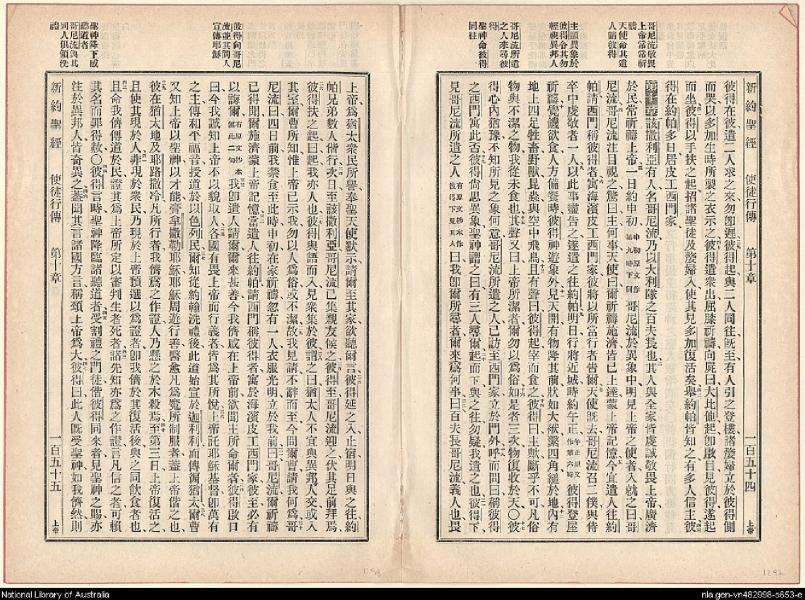 新約聖經 使徒行傳 第十章 一百五十四 上帝
彼得在彼遣二人求之來勿卽遲彼得起與二人同往旣至有人引之登樓諸嫠婦立於彼得側
而哭以多加生時所製之衣示之彼得遣衆出屈膝祈禱向屍曰大比他起卽啟目見彼得遂起
而坐彼得以手扶之起招諸聖徒及嫠婦入使其見多加復活矣舉約帕皆知之有多人信主彼
得在約帕多日居皮工西門家
第十章該撒利亞有人名哥尼流乃以大利隊之百夫長也其人與全家皆虔誠敬畏上帝廣濟
於民常祈禱上帝一日約申初
哥尼流於異象中明見上帝之使者入就之曰哥
尼流哥尼流注目視之驚曰主何事天使曰爾祈禱施濟皆已上達蒙上帝記憶今宜遣人往約
帕請西門稱彼得者寓海濱皮工西門家彼將以所當行者告爾天使旣去哥尼流召二僕與侍
卒中虔敬者一人以此事盡告之遂遣往約帕明日行將近城時約午正
彼得登屋
祈禱覺饑欲食人方備饗時彼得神遊象外見天開有物降其前狀如大布繫四角縋於地內有
地上四足牲畜野獸昆蟲與空中飛鳥且有聲曰彼得起宰而食之彼得曰主歟斷乎不可凡俗
物與不潔之物我從未食也其聲又曰上帝所潔者爾勿以爲俗如是者三次物復收於天○彼
得心內猶豫不知所見之象何意哥尼流所遣之人已訪至西門家立於門外呼而問曰稱彼得
之西門寓此否彼得尚思異象聖神謂之曰有三人尋爾起而下與之往勿疑我遣之也彼得下
見哥尼流所遣之人
曰我卽爾所尋者爾來爲何事曰百夫長哥尼流義人也畏
上帝爲猶太衆民所譽奉聖天使默示請爾至其家欲聽爾言彼得延之入止宿明日與之往約
帕兄弟數人偕行次日至該撒利亞哥尼流已集親友候之彼得至哥尼流迎之伏其足前拜焉
彼得扶之起曰起我亦人也彼得與語而入見衆集於彼謂之曰猶太人不宜與異邦人交或入
其室爾曹所知惟上帝已示我勿以人爲俗或不潔故我見請不辭而至今問爾曹請我何爲哥
尼流曰四日前我禁食至此時申初在家祈禱忽有一人衣服光明立於我前曰哥尼流爾祈禱
已得聞爾施濟蒙上帝記憶當遣人往約帕請西門稱彼得者寓於海濱皮工西門家彼至必有
以誨爾
我卽遣人請爾爾來甚善今我儕咸在上帝前欲聞主所命爾者彼得啟口
曰今我誠知上帝不以貌取人各國有畏上帝而行義者皆爲其所悅上帝託耶穌基督卽萬有
之主傳和平福音授道於以色列民爾知從約翰洗禮後此道始宣於迦利利而傳徧猶太爾曹
又知上帝以聖神以才能膏拿撒勒耶穌耶穌周遊行善醫愈凡爲魔所制服者蓋上帝偕之也
彼在猶太地及耶路撒冷凡所行者我儕爲之作證人乃懸之於木殺焉至第三日上帝復活之
且使其現於人非現於衆民乃現於上帝預選以爲證者卽我儕於其復活後與之同飲食者也
且命我儕傳道於民證其爲上帝所定以審判生者死者諸先知亦爲之作證言凡信之者可賴
其名而罪得赦○彼得言時聖神降臨諸聽道者受割禮之門徒偕彼得同來者見聖神之賜亦
注於異邦人皆奇異之蓋聞其言諸國方言稱頌上帝爲大彼得曰此人旣受聖神如我儕然則
新約聖經 使徒行傳 第十章 一百五十五 上帝
National Library of Australia
nla.gen-vn482998-s653-e